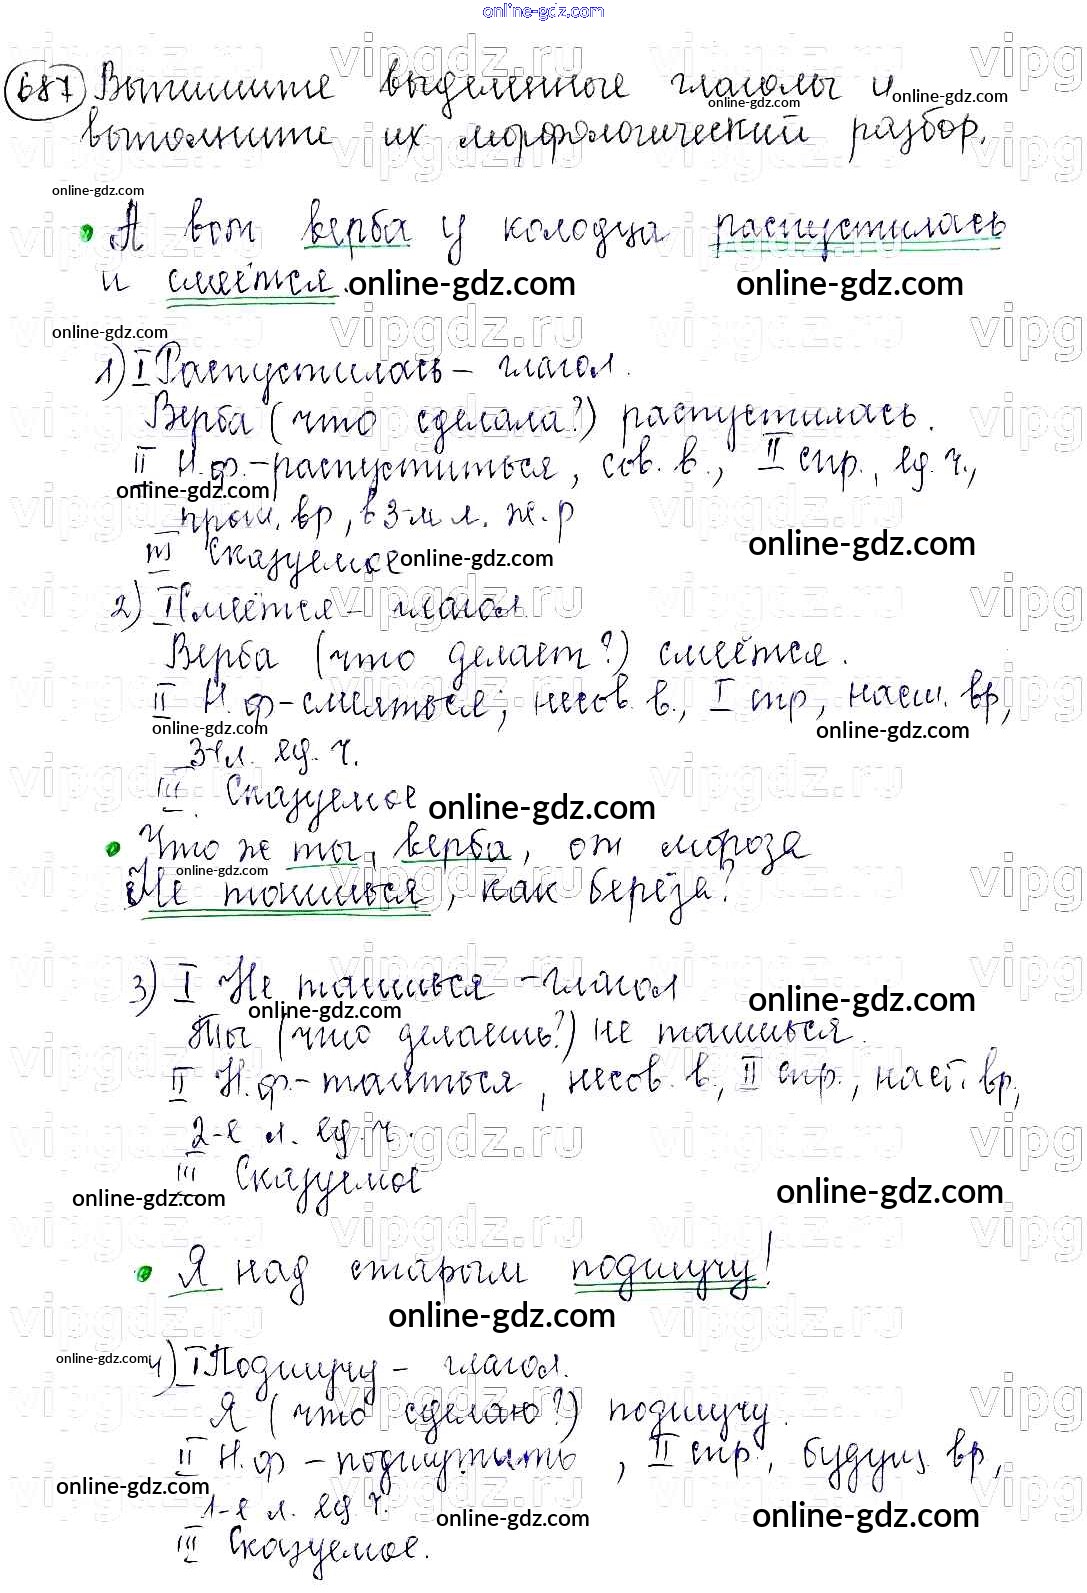 online-gdz.com
687 Выпишите выделенные глаголы и
выполните их морфологический разбор.
• А вот верба у колодца распустилась
и смеётся.
1) I Распустилась – глагол.
Верба (что сделала?) распустилась.
II Н.ф.-распуститься, сов. в., II спр., ед. ч.,
прош. вр, в 3-м л. ж. р
III Сказуемое
2) I Смеётся – глагол.
Верба (что делает?) смеётся.
II Н.ф-смеяться, несов. в., I спр, наст. вр,
3-е л. ед. ч.
III Сказуемое
• Что же ты, верба, от мороза
Не таишься, как берёза?
3) I Не таишься – глагол
Ты (что делаешь?) не таишься.
II Н.ф-таиться, несов. в., II спр., наст. вр,
2-е л. ед. ч.
III Сказуемое
• Я над старым подшучу!
4) I Подшучу – глагол.
Я (что сделаю?) подшучу.
II Н.ф – подшутить, II спр., будущ вр,
1-е л. ед ч.
III Сказуемое.